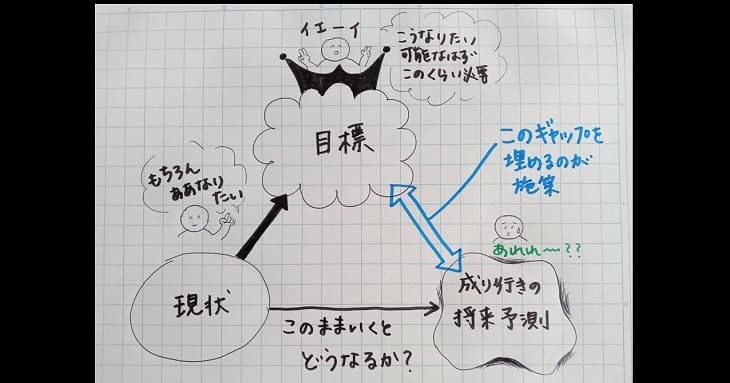 イエーイ
こうなりたい
可能なはず
このくらい必要
目標
このギャップを
埋めるのが
施策
もちろん
ああなり
たい
あれれ〜??
現状
成り行きの
将来予測
このままいくと
どうなるか?